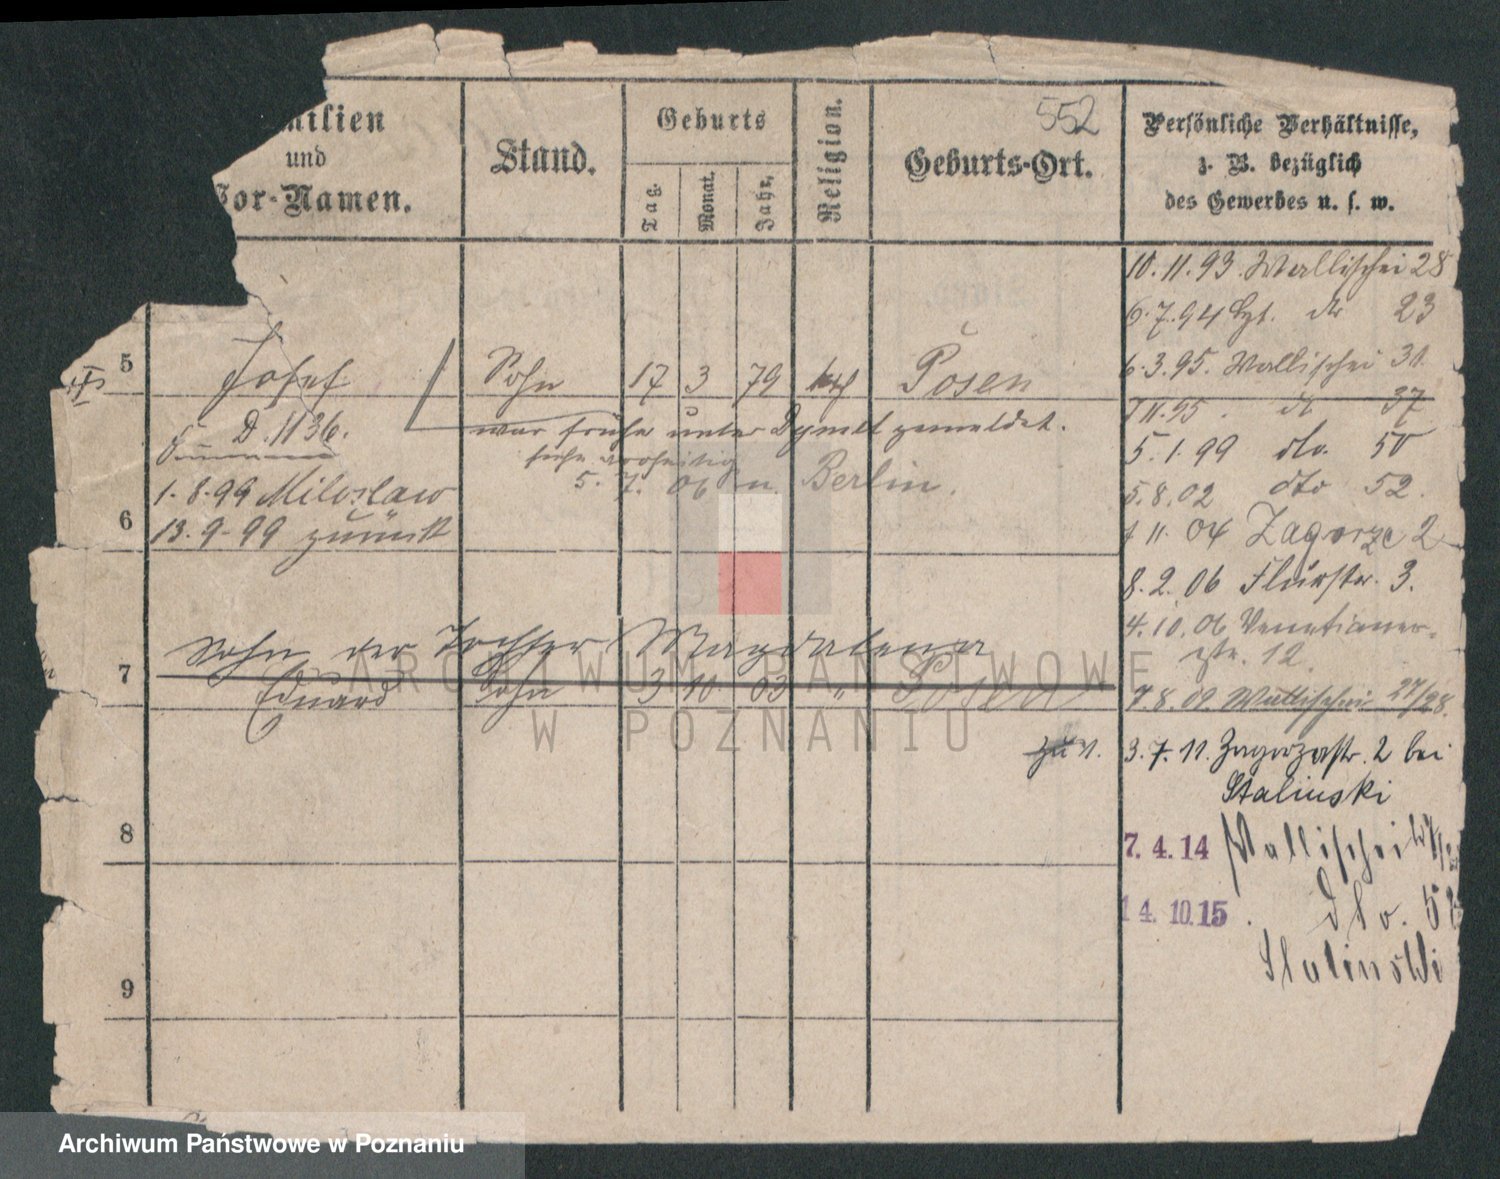 552
milien
und
Vor-Namen.
Stand.
Geburts
Tag.
Monat.
Jahr.
Religion.
Geburts-Ort.
Persönliche Verhältnisse,
z. B. bezüglich
des Gewerbes u. s. w.
10.11.93. Wallischei 28
6.7.94 do 23
5 Josef Sohn 17 3 79 kath Posen
6.3.95. Wallischei 31.
D. 1136.
war früher unter Dymek gemeldet.
11.95. do 37
5.1.99 dto. 50
5.7.06 n. Berlin.
1.8.99 Miloslaw
5.8.02 dto 52.
6
13.9.99 zurück
11.04 Zagorze 2
8.2.06 Flurstr. 3.
4.10.06 Venetianer-
str. 12.
Sohn der Tochter Magdalena
7 Eduard Sohn 3 10. 03 " Posen
7.8.09. Wallischei 27/28.
zu 11.
3.7.11. Zagorzestr. 2 bei
Stalinski
8
7.4.14 Wallischei
14.10.15. dto. 52
Stalinski
9
ARCHIWUM PAŃSTWOWE
W POZNANIU
Archiwum Państwowe w Poznaniu